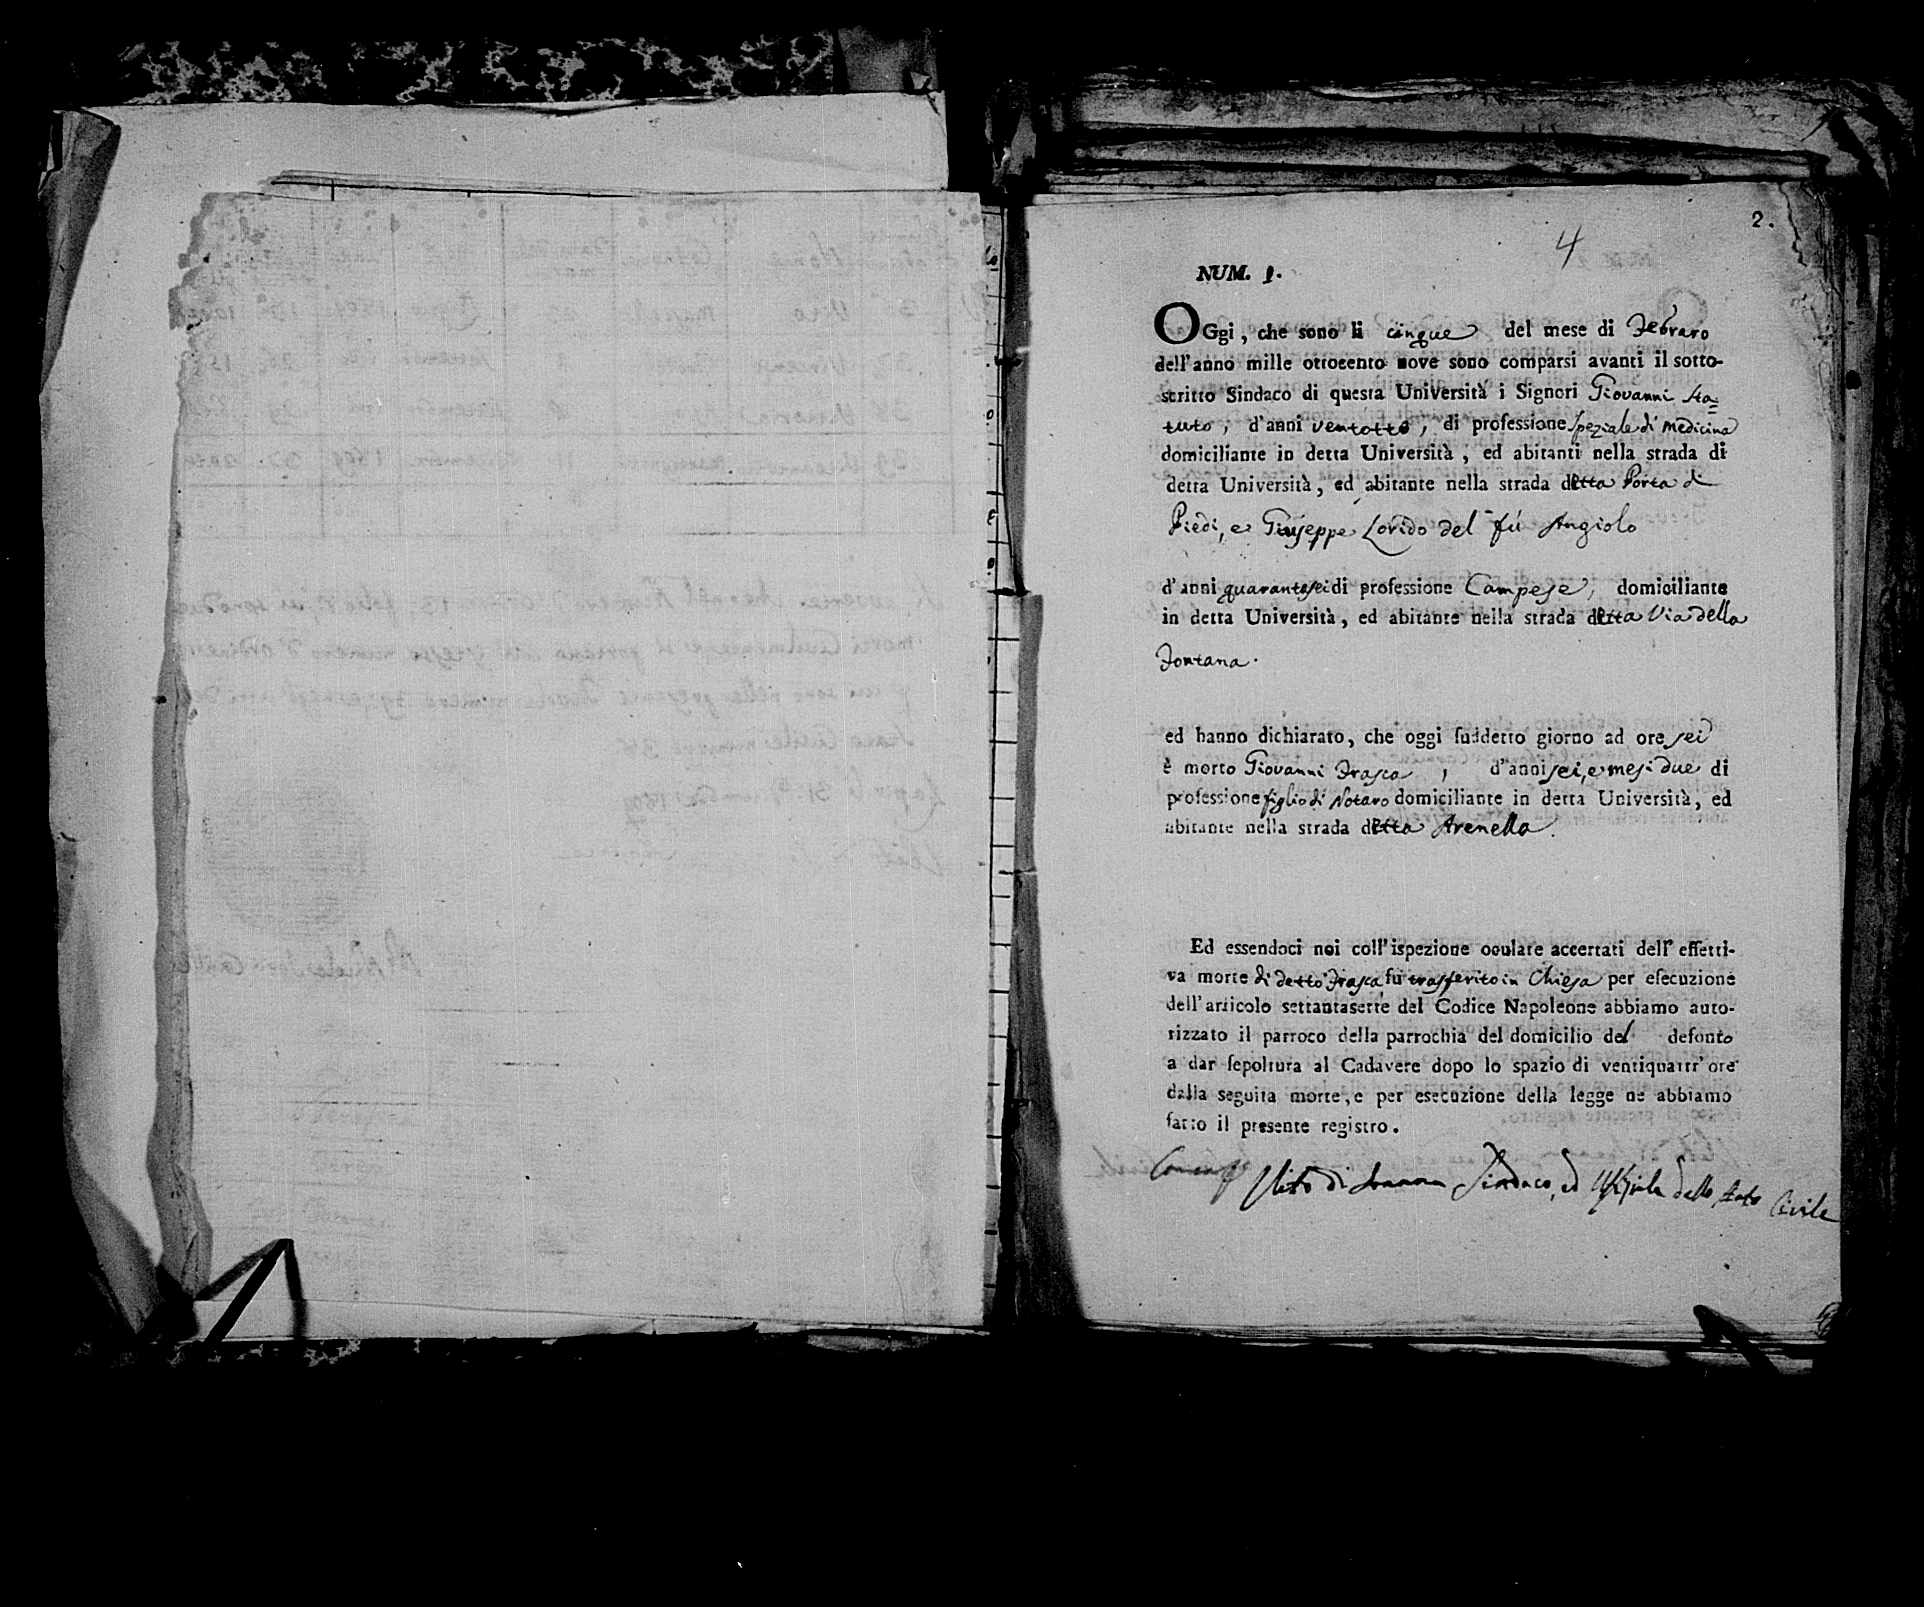 2.
4
NUM. 1.
OGgi, che sono li cinque del mese di Febraro
dell'anno mille ottocento nove sono comparsi avanti il sotto-
scritto Sindaco di questa Università i Signori Giovanni Sta=
tuto, d'anni ventotto, di professione speziale di medicina
domiciliante in detta Università, ed abitanti nella strada di
detta Università, ed abitante nella strada detta Porta di
Piedi, e Giuseppe Lovido del fù Angiolo
d'anni quarantasei di professione Campese, domiciliante
in detta Università, ed abitante nella strada detta Via della
Fontana.
ed hanno dichiarato, che oggi suddetto giorno ad ore sei
è morto Giovanni Frasca, d'anni sei, e mesi due di
professione figlio di Notaro domiciliante in detta Università, ed
abitante nella strada detta Arenella.
Ed essendoci noi coll'ispezione oculare accertati dell'effetti-
va morte di detto Frasca, fù trasferito in Chiesa per esecuzione
dell'articolo settantasette del Codice Napoleone abbiamo auto-
rizzato il parroco della parrochia del domicilio del defonto
a dar sepoltura al Cadavere dopo lo spazio di ventiquattr'ore
dalla seguita morte, e per esecuzione della legge ne abbiamo
fatto il presente registro.
di Sindaco, ed Uffiziale dello Stato Civile